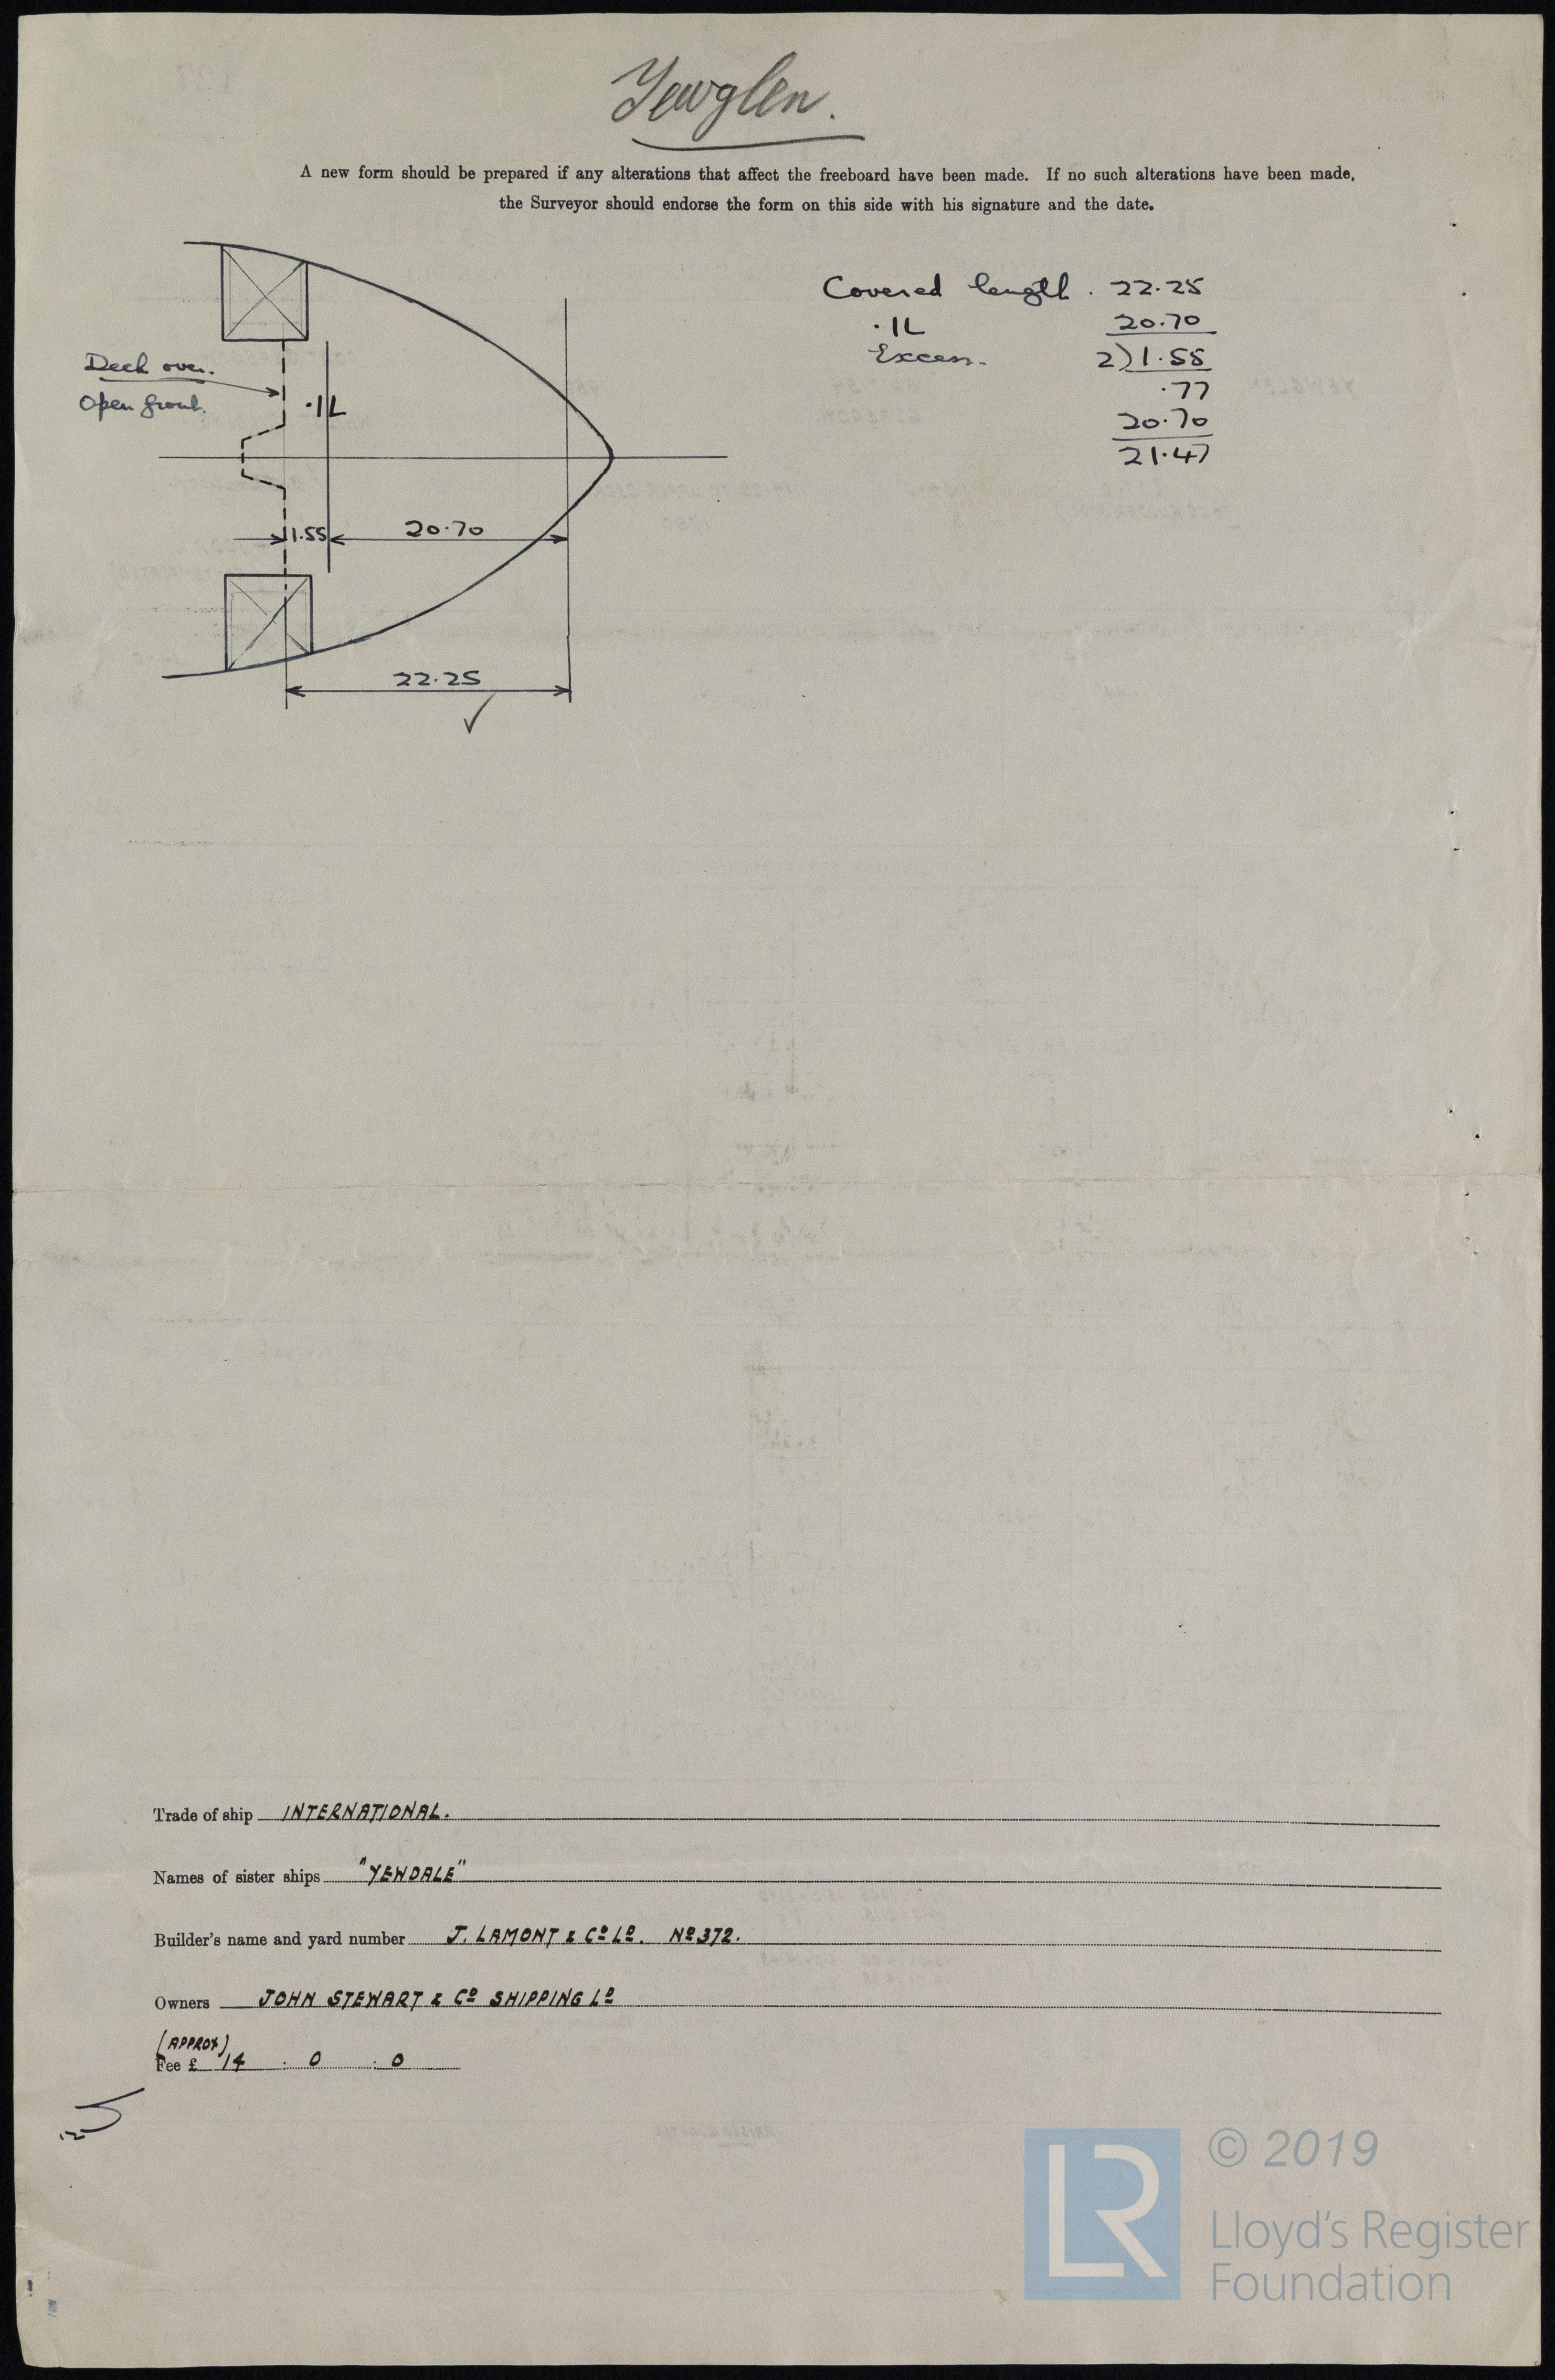 Yewglen.
A new form should be prepared if any alterations that affect the freeboard have been made. If no such alterations have been made,
the Surveyor should endorse the form on this side with his signature and the date.
Covered length . 22.25
.1L 20.70
Excess. 2)1.55
.77
20.70
21.47
Deck over.
Open front.
.1L
1.55
20.70
22.25
Trade of ship INTERNATIONAL.
Names of sister ships "YEWDALE"
Builder's name and yard number J. LAMONT & Co Ld. No 372.
Owners JOHN STEWART & Co SHIPPING Ld
(APPROX)
Fee £ 14 . 0 . 0
© 2019
LR
Lloyd's Register
Foundation